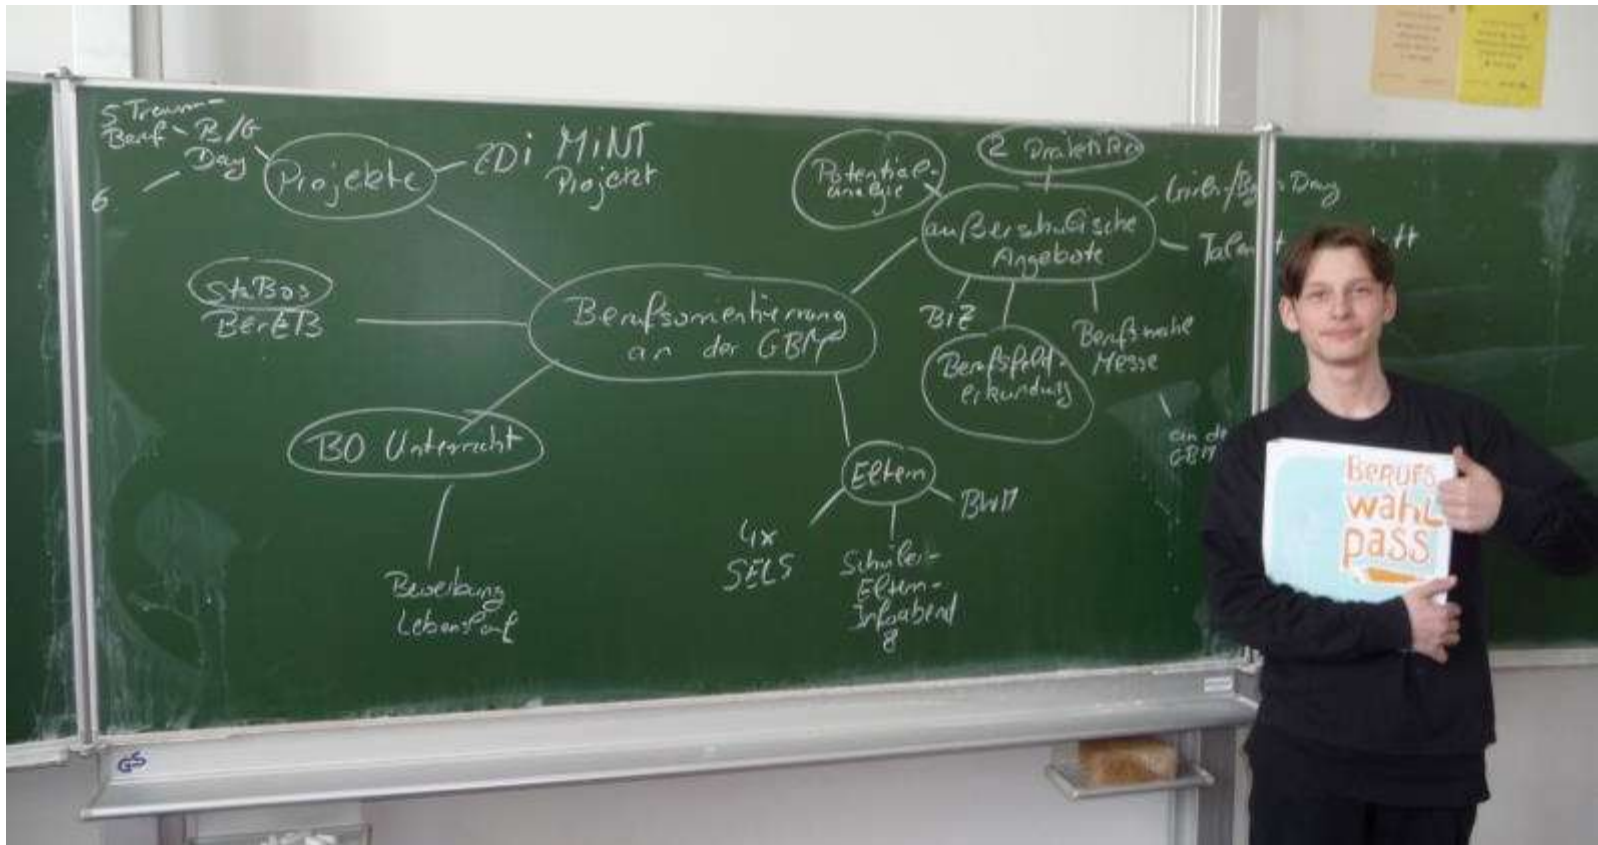 5 Traum-
Beruf - B/G
Day
6
Projekte
ZDi MiNT
Projekt
StuBos
BerEB
Berufsorientierung
an der GBM
BO Unterricht
Bewerbung
Lebenslauf
Potential-
analyse
2 Praktika
außerschulische
Angebote
Girls-/Boys Day
BiZ
Berufsfeld-
erkundung
Berufswahl
Messe
an de
GBM
Eltern
BWM
4x
SELS
Schüler-
Eltern-
Infoabend
8
BERUFS
WAHL
PASS
GS